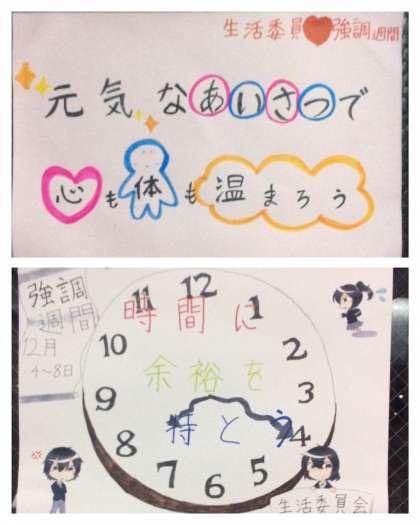 生活委員❤強調週間
元気なあいさつで
心も体も温まろう
強調
週間
12月
4~8日
時間に
余裕を
持とう
12
1
2
3
4
5
6
7
8
9
10
11
生活委員会